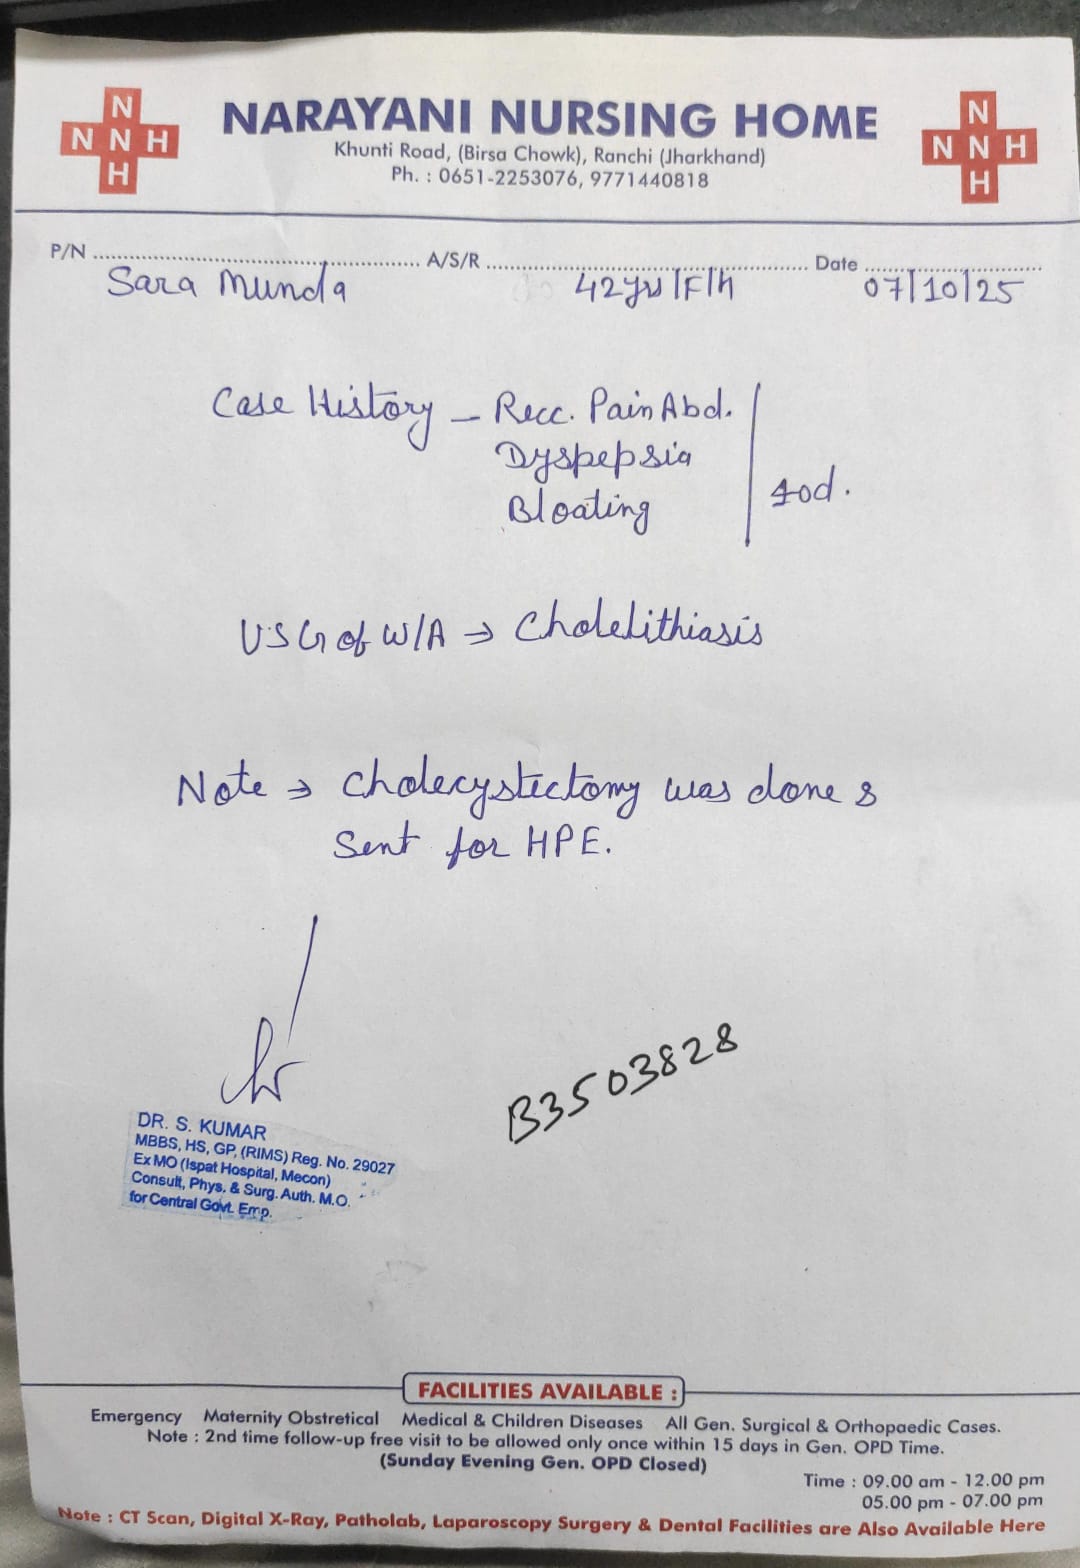 N
N N H
H
NARAYANI NURSING HOME
N
N N H
H
Khunti Road, (Birsa Chowk), Ranchi (Jharkhand)
Ph. : 0651-2253076, 9771440818
P/N ........ A/S/R ........ Date ........
Sara Munda 42yrs/F/h 07/10/25
Case History – Recc. Pain Abd.
Dyspepsia
Bloating
USG of W/A → Cholelithiasis
Note → Cholecystectomy was done &
Sent for HPE.
B3503828
DR. S. KUMAR
MBBS, HS, GP, (RIMS) Reg. No. 29027
Ex MO (Ispat Hospital, Mecon)
Consult, Phys. & Surg. Auth. M.O.
for Central Govt. Emp.
FACILITIES AVAILABLE :
Emergency Maternity Obstretical Medical & Children Diseases All Gen. Surgical & Orthopaedic Cases.
Note : 2nd time follow-up free visit to be allowed only once within 15 days in Gen. OPD Time.
(Sunday Evening Gen. OPD Closed)
Time : 09.00 am - 12.00 pm
05.00 pm - 07.00 pm
Note : CT Scan, Digital X-Ray, Patholab, Laparoscopy Surgery & Dental Facilities are Also Available Here